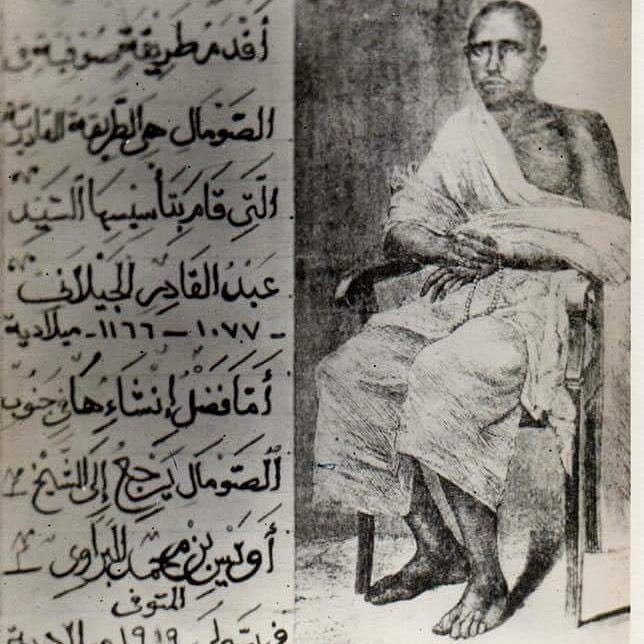 أقدم طريقة صوفية في
الصومال هي الطريقة القادرية
الَّتي قَامَ بتَأسيسِهَا السَّيِّد
عَبدُ القَادِرِ الجَيلَاني
- ١٠٧٧ - ١١٦٦ - ميلادية
أمَّا فَضْلُ إنشَاءِهَا في جنوب
الصَّومَال يَرجِعُ إلَى الشَّيخ
أوَيس بن محمد البراوى
المتوفى
١٩١٩